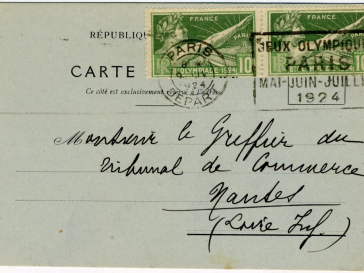 RÉPUBLIQUE
FRANCE
FRANCE
PARIS
8e OLYMPIADE 1924
10
10
1924
DEPART
JEUX OLYMPIQUES
PARIS
MAI-JUIN-JUILLET
1924
CARTE
Ce côté est exclusivement
Monsieur le Greffier du
Tribunal de Commerce
Nantes
(Loire Inf.)